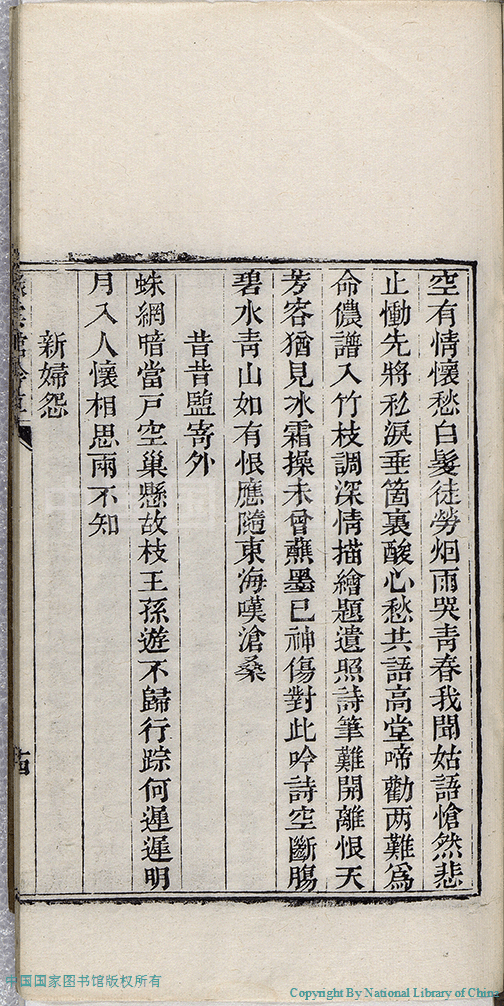 空有情懷愁白髮徒勞烟雨哭青春我聞姑語愴然悲
止慟先將私淚垂箇裏酸心愁共語高堂啼勸两難爲
命儂譜入竹枝調深情描繪題遺照詩筆難開離恨天
芳容猶見冰霜操未曾蘸墨已神傷對此吟詩空斷腸
碧水靑山如有恨應隨東海嘆滄桑
昔昔鹽寄外
蛛網暗當戸空巢懸故枝王孫遊不歸行踪何遲遲明
月入人懷相思兩不知
新婦怨
十四
中国国家图书馆版权所有
Copyright By National Library of China